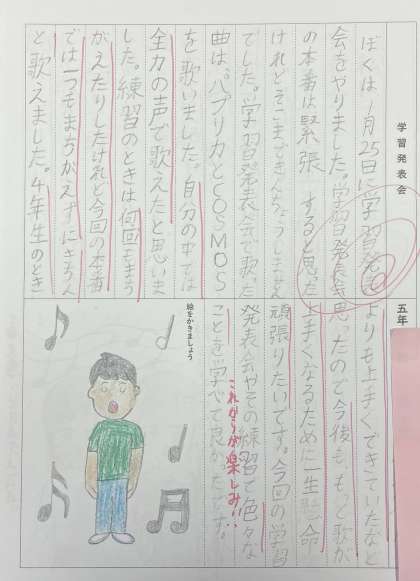 学習発表会
五年
ぼくは1月25日に学習発
会をやりました。学習発表会
の本番は緊張 すると思った
けれどそこまできんちょうしません
でした。学習発表会で歌った
曲は、パプリカとCOSMOS
を歌いました。自分の中では
全力の声で歌えたと思いま
した。練習のときは何回もまち
がえたりしたけれど今回の本番
では一つもまちがえずにきちん
と歌えました。4年生のとき
よりも上手くできていたなと
思ったので今後も、もっと歌が
上手くなるために一生懸命
頑張りたいです。今回の学習
発表会やその練習で色々な
ことを学べて良かったです。
これからが楽しみ!!
絵をかきましょう